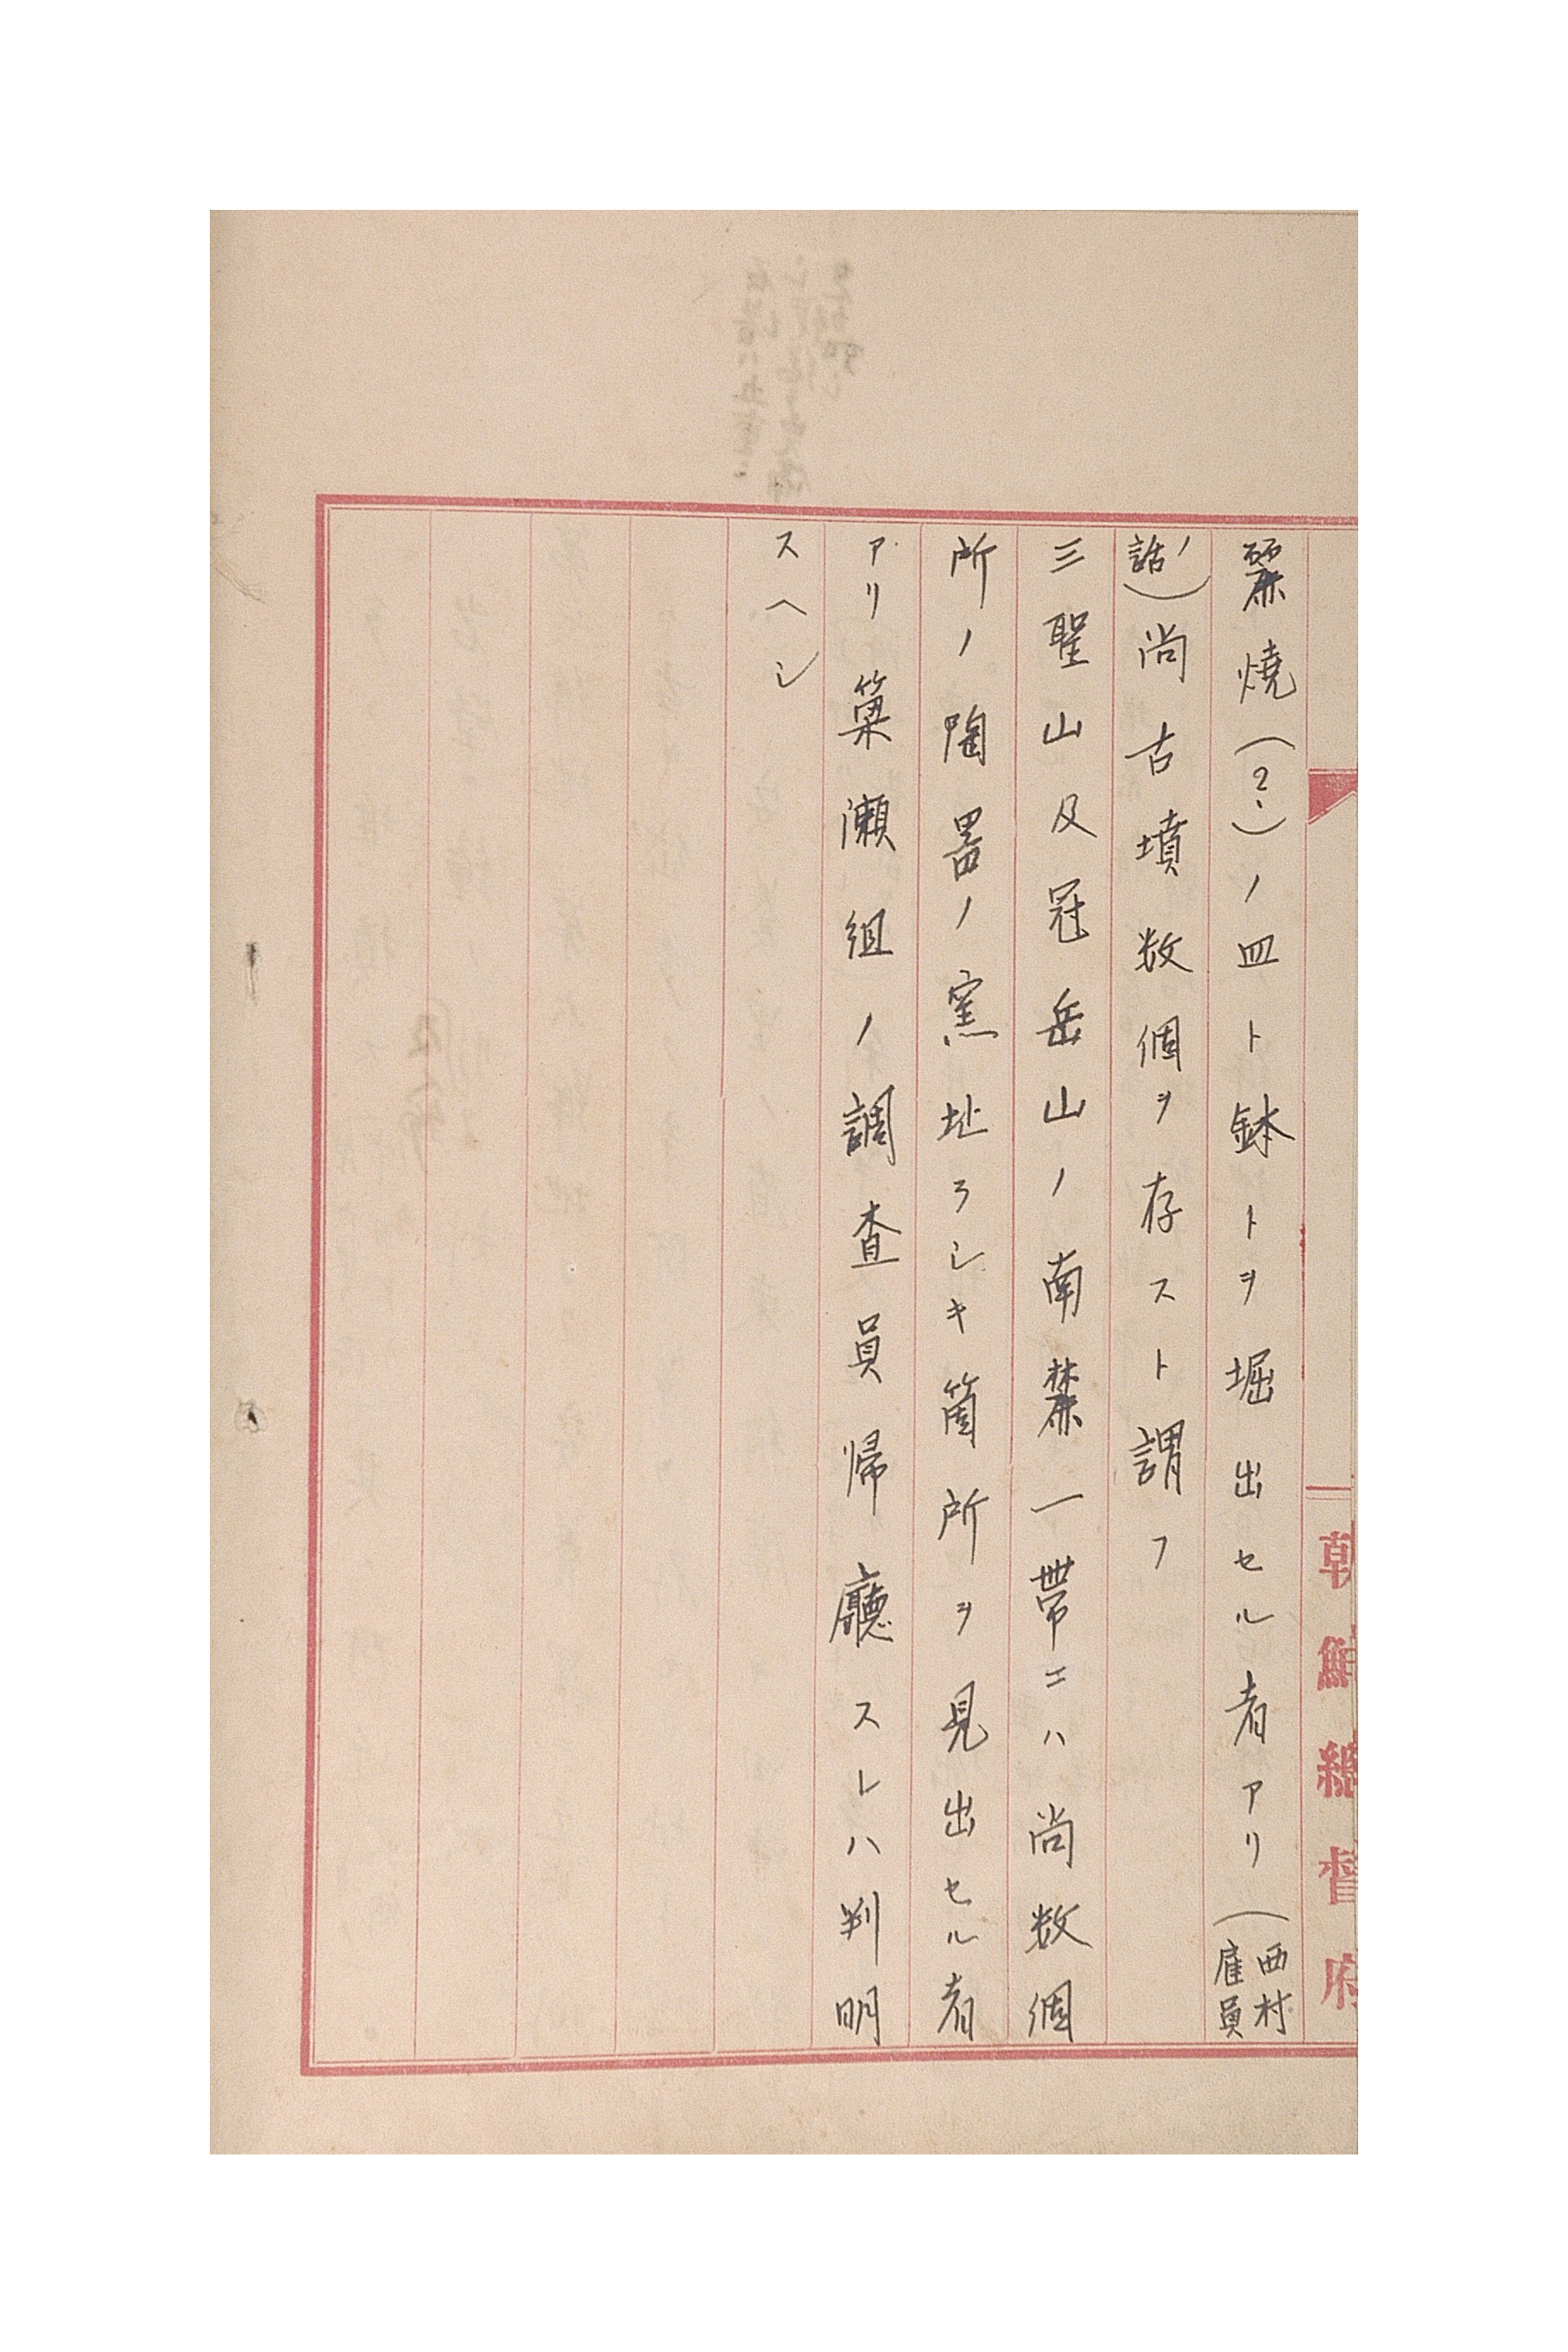 朝鮮總督府
麗燒(?)ノ皿ト鉢トヲ堀出セル者アリ(西村雇員
ノ話)尚古墳数個ヲ存スト謂フ
三聖山及冠岳山ノ南麓一帯ニハ尚数個
所ノ陶器ノ窯址ラシキ箇所ヲ見出セル者
アリ簗瀬組ノ調査員帰廳スレハ判明
スヘシ